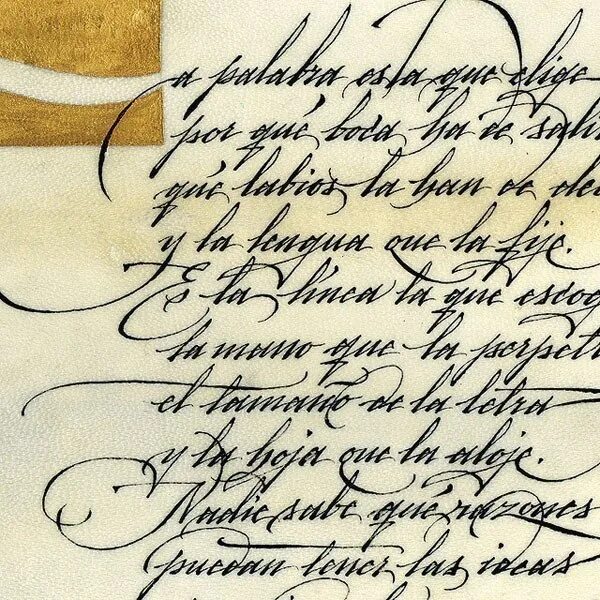 a palabra es la que elige
por qué boca ha de sali
qué labios la han de dec
y la lengua que la fije.
Es la línea la que escog
la mano que la perpet
el tamaño de la letra
y la hoja que la aloje.
Nadie sabe qué razones
puedan tener las ideas